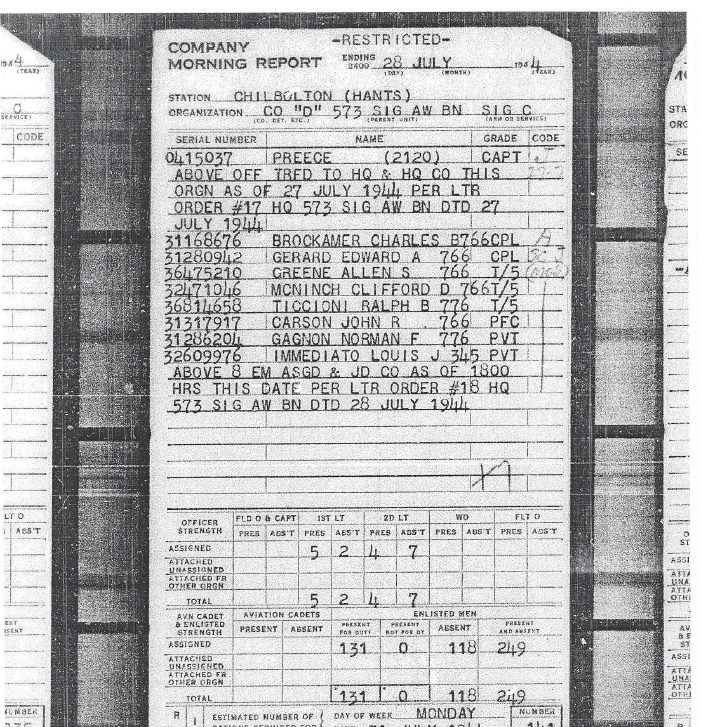 -RESTRICTED-
COMPANY
MORNING REPORT ENDING 2400 28 JULY 1944
(DAY) (MONTH) (YEAR)
STATION CHILBOLTON (HANTS)
ORGANIZATION CO "D" 573 SIG AW BN SIG C
(CO. DET. ETC.) (PARENT UNIT) (ARM OR SERVICE)
SERIAL NUMBER NAME GRADE CODE
0415037 PREECE (2120) CAPT
ABOVE OFF TRFD TO HQ & HQ CO THIS
ORGN AS OF 27 JULY 1944 PER LTR
ORDER #17 HQ 573 SIG AW BN DTD 27
JULY 1944
31168676 BROCKAMER CHARLES B766CPL A
31280942 GERARD EDWARD A 766 CPL
36475210 GREENE ALLEN S 766 T/5
32471046 MCNINCH CLIFFORD D 766T/5
36814658 TICCIONI RALPH B 776 T/5
31317917 CARSON JOHN R . 766 PFC
31286204 GAGNON NORMAN F 776 PVT
32609976 IMMEDIATO LOUIS J 345 PVT
ABOVE 8 EM ASGD & JD CO AS OF 1800
HRS THIS DATE PER LTR ORDER #18 HQ
573 SIG AW BN DTD 28 JULY 1944
OFFICER STRENGTH FLD O & CAPT 1ST LT 2D LT WO FLT O
PRES ABS'T PRES ABS'T PRES ABS'T PRES ABS'T PRES ABS'T
ASSIGNED 5 2 4 7
ATTACHED UNASSIGNED
ATTACHED FR OTHER ORGN
TOTAL 5 2 4 7
AVN CADET & ENLISTED STRENGTH AVIATION CADETS ENLISTED MEN
PRESENT ABSENT PRESENT FOR DUTY PRESENT NOT FOR DY ABSENT PRESENT AND ABSENT
ASSIGNED 131 0 118 249
ATTACHED UNASSIGNED
ATTACHED FR OTHER ORGN
TOTAL 131 0 118 249
R ESTIMATED NUMBER OF DAY OF WEEK MONDAY NUMBER